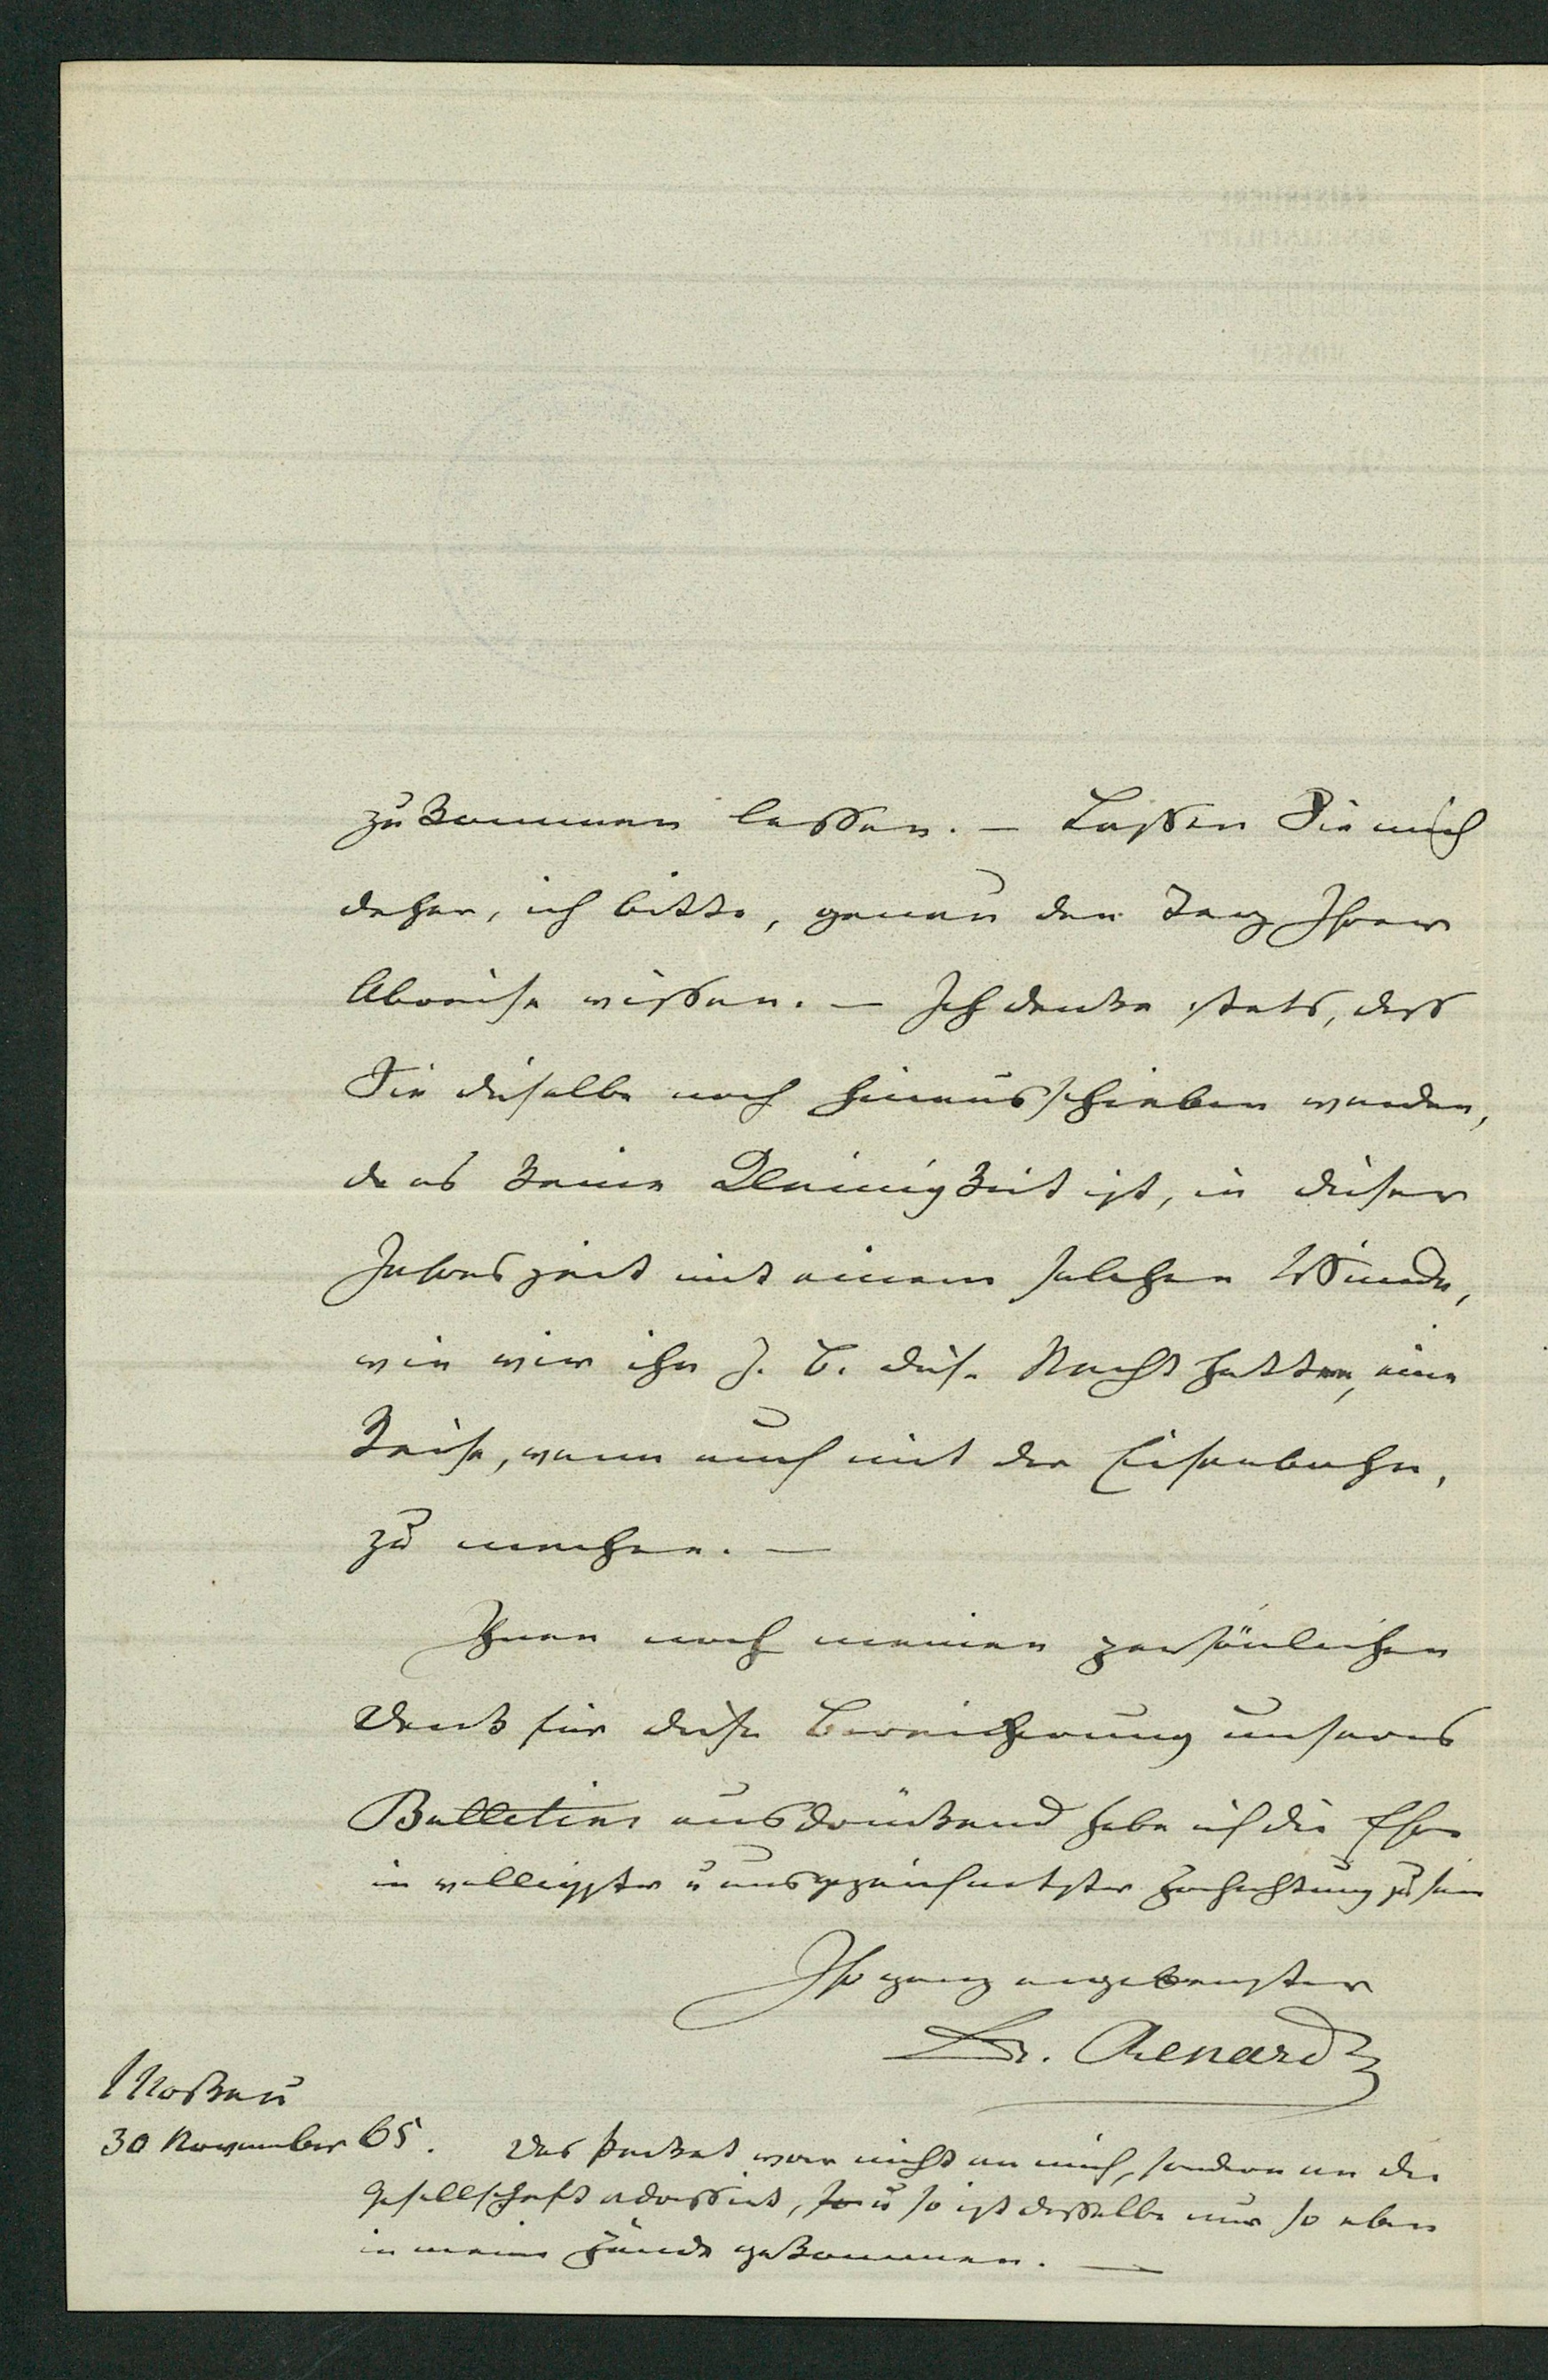 zukommen lassen. – Lassen Sie mich
daher, ich bitte, genau den Tag Ihrer
Abreise wissen. – Ich denke stets, dass
Sie dieselbe noch hinausschieben werden,
da es keine Kleinigkeit ist, in dieser
Jahreszeit mit einem solchen Winde,
wie wir ihn z. B. diese Nacht hatten, eine
Reise, wenn auch mit der Eisenbahn,
zu machen. –
Ihnen noch meinen persönlichen
Dank für diese Bereicherung unseres
Bulletins ausdrückend habe ich die Ehre
in völligster u ausgezeichnetster Hochachtung zu sein
Ihr ganz ergebenster
Dr. Renard
Moskau
30 November 65.
Das Packet war nicht an mich, sondern an die
Gesellschaft adressirt, u so ist dasselbe nur so eben
in meine Hände gekommen. –